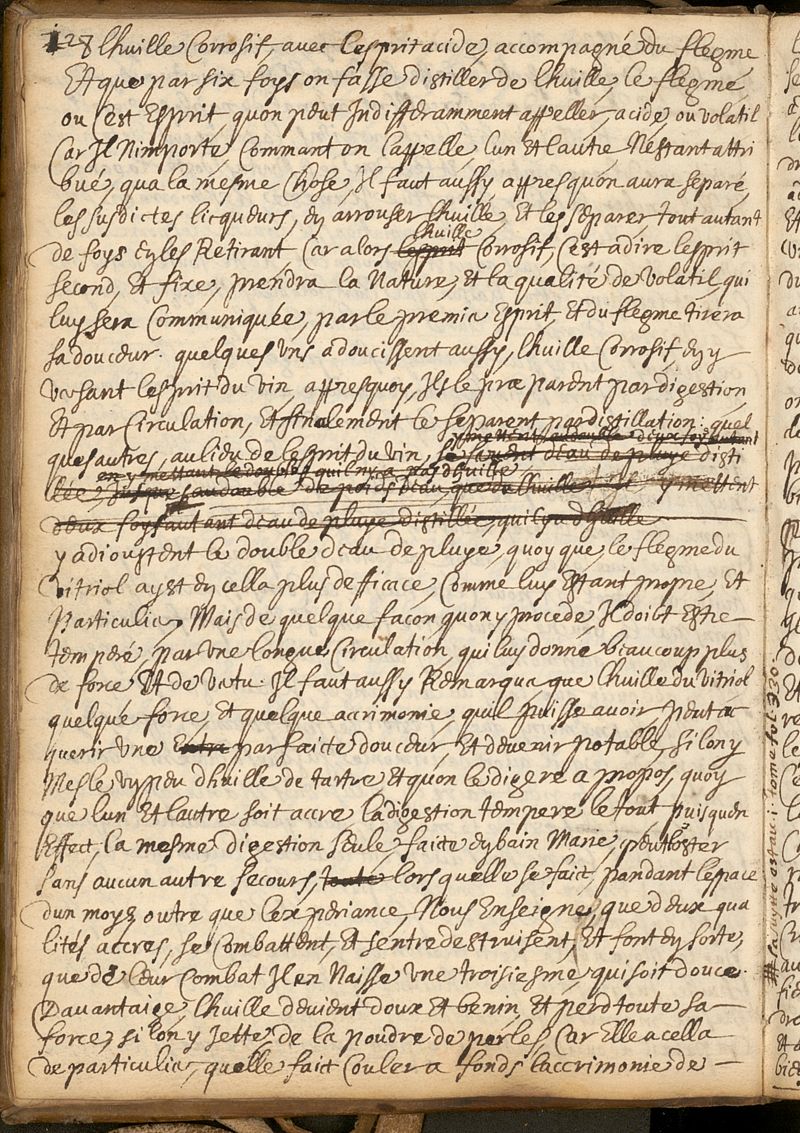 128 lhuille Corrosif, avec lesprit acide, accompagné du flegme
Et que par six foys on fasse distiller de lhuille, le flegme,
ou Cest Esprit, quon peut Indifferamment appeller, acide, ou volatil
Car Il Nimporte, Commant on lappelle lun Et lautre Nestant attri
bué, qua la mesme Chose, Il faut aussy appres quon aura separé,
les susdictes licqueurs, en arrouser lhuille, Et les separer, tout autant
de foys en les Retirant Car alors lesprit Corrosif, Cest a dire lesprit
lhuille
second, et fixe, prendra la Nature, et la qualité de volatil, qui
luy sera Communiquée, par le premier Esprit, et du flegme tirera
sa douceur. quelques uns adoucissent aussy, lhuille Corrosif en y
versant lesprit du vin, appres quoy, Ils le præparent par digestion
Et par Circulation, et finalement le separent par distillation: quel
ques autres, au lieu de lesprit du vin se servent deau de pluye disti
en y mettant le double quil ny a pas dhuille
lée, Jusques au double de poids deau que de lhuille y mettent
deux foys autant deau de pluye distillée, quil y a dhuille
y adioustent le double deau de pluye, quoy que, le flegme du
vitriol ayst en cella plus defficace, Comme luy estant propre, et
Particulier, Mais de quelque facon quon y procede, Il doibt Estre
temperé, par une longue Circulation, qui luy donne beaucoup plus
de force Et de vertu. Il faut aussy Remarquer que lhuille du vitriol
quelque force, et quelque accrimonie, quil puisse avoir, peut ac
querir une entre parfaicte douceur, et devenir potable, si lon y
Mesle un peu dhuille de tartre et quon le digere a propos, quoy
que lun et lautre soit accre la digestion tempere le tout puis quen
Effect, la mesme digestion seule, faicte en bain Marie, peut loster
sans aucun autre secours, toute lors quelle se faict pandant lespace
dun moys, outre que lexperiance, Nous Enseigne, que deux qua
lités accres, se Combattent, et sentredestruisent, et font en sorte,
que de leur Combat Il en Naisse une troisiesme, qui soit douce.
Davantaige, lhuille devient doux et benin, et perd toute sa
force, si lon y Jette, de la poudre de perles Car Elle a cella
de particulier, quelle faict Couler a fonds laccrimonie de